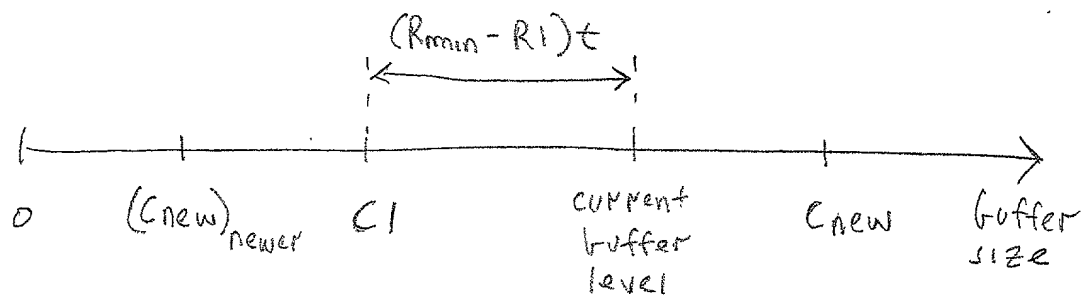 (Rmin - R1)t
0
(Cnew)newer
C1
current
buffer
level
Cnew
buffer
size